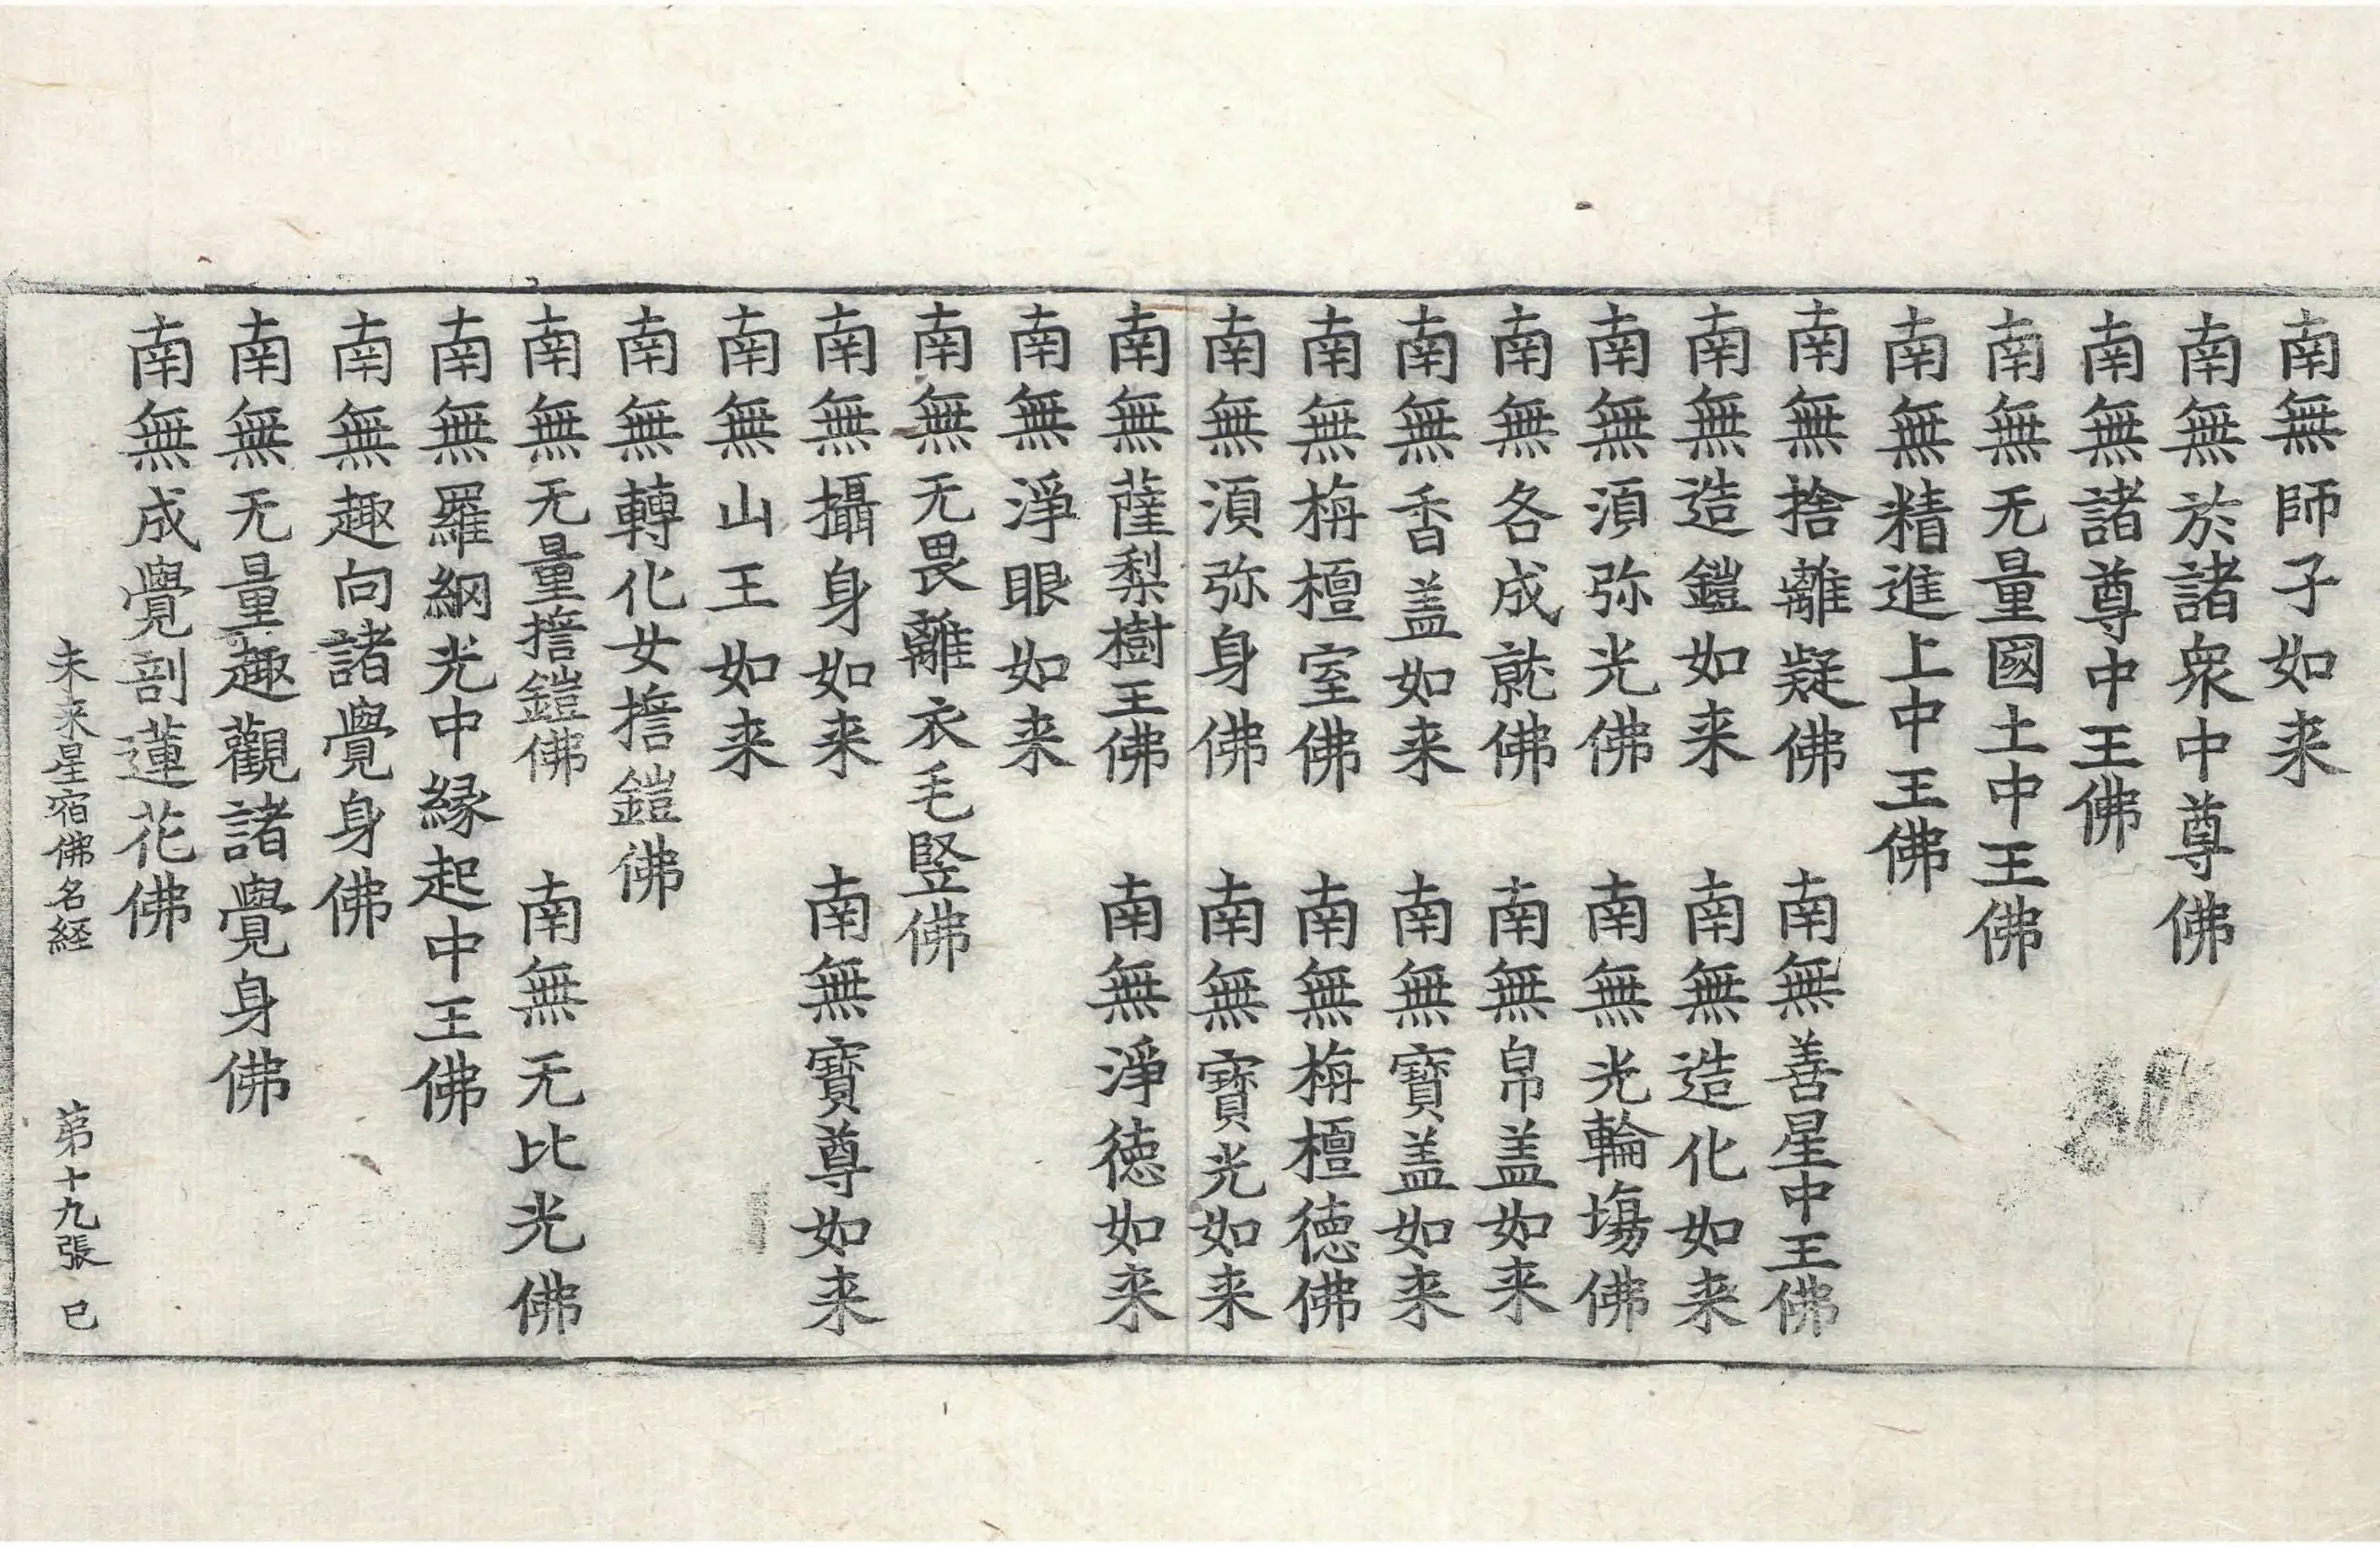 南無師子如来
南無於諸衆中尊佛
南無諸尊中王佛
南無无量國土中王佛
南無精進上中王佛
南無捨離疑佛　南無善星中王佛
南無造鎧如来　南無造化如来
南無湏弥光佛　南無光輪塲佛
南無各成就佛　南無帛盖如来
南無香盖如来　南無寶盖如来
南無栴檀室佛　南無栴檀德佛
南無湏弥身佛　南無寶光如来
南無薩梨樹王佛　南無淨德如来
南無淨眼如来
南無无畏離衣毛竪佛
南無攝身如来　南無寶尊如来
南無山王如来
南無轉化女擔鎧佛
南無无量擔鎧佛　南無无比光佛
南無羅網光中緣起中王佛
南無趣向諸覺身佛
南無无量趣觀諸覺身佛
南無成覺剖蓮花佛
未来星宿佛名経　第十九張　巳